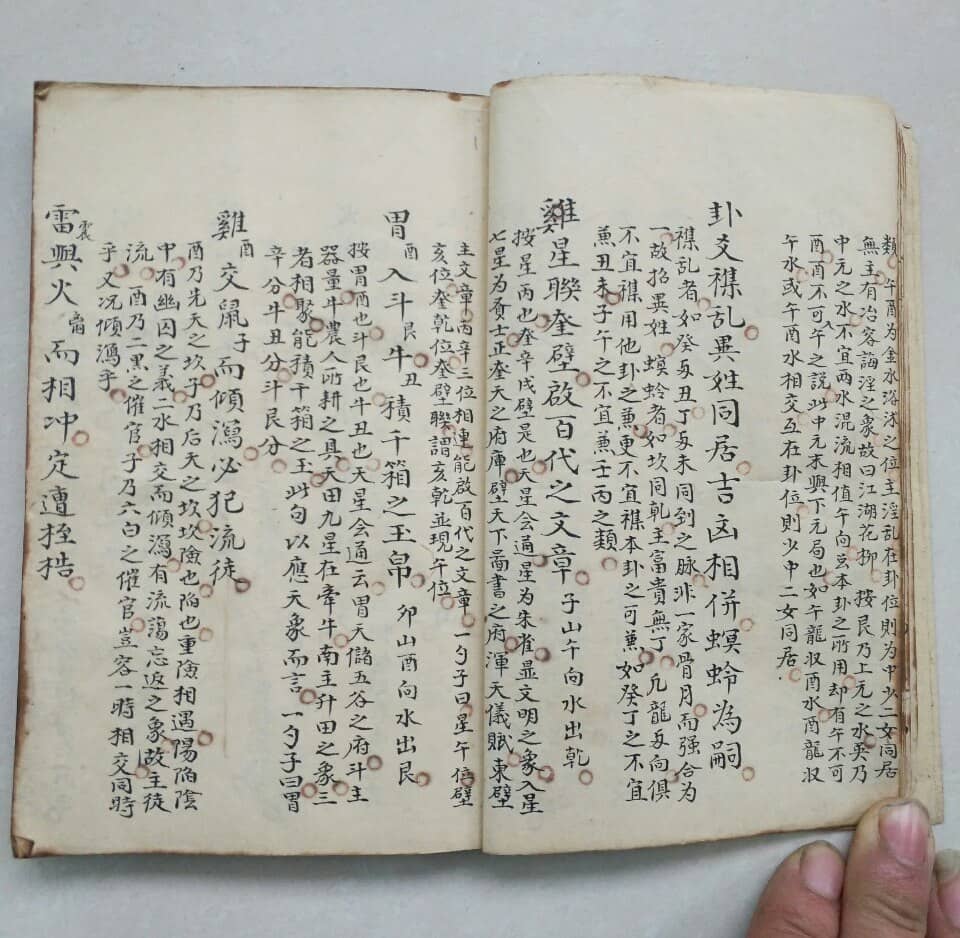 類午酉為金水浴沐之位主淫乱在卦位則為中少二女同居
無主有冶容誨淫之象故曰江湖花柳 按艮乃上元之水吳乃
中元之水不宜两水混流相值午向虽本卦之所用却有午不可
酉酉不可午之說此中元末興下元局也如午龍収酉水酉龍収
午水或午酉水相交互在卦位則少中二女同居
卦爻襍乱異姓同居吉凶相併螟蛉為嗣
襍乱者如癸与丑丁与未同到之脉非一家骨月而强合為
一故招異姓螟蛉者如坎同乾主富貴無丁凢龍与向俱
不宜襍用他卦之蒹更不宜襍本卦之可蒹如癸丁之不宜
蒹丑未子午之不宜蒹壬丙之類
雞星聯奎壁啟百代之文章 子山午向水出乾
按星丙也奎辛戌壁是也天星会通星为朱雀显文明之象入星
七星为賁士正奎天之府庫壁天下啚書之府渾天儀賦東壁
主文章丙辛三位相連能啟百代之文章一勺子曰星午位壁
亥位奎乾位奎壁聯謂亥乾並現午位
胃酉入斗艮牛丑積千箱之玉帛 卯山酉向水出艮
按胃酉也斗艮也牛丑也天星会通云胃天儲五谷之府斗主
器量牛農人所耕之具天田九星在牽牛南主升田之象三
者相聚能積千箱之玉此句以應天象而言一勺子曰胃
辛分斗丑分斗艮分
雞酉交鼠子而傾瀉必犯流徒
酉乃先天之坎子乃后天之坎坎險也陷也重險相遇陽陷陰
中有幽囚之義二水相交而傾瀉有流蕩忘返之象故主徒
流 酉乃二黑之催官子乃六白之催官豈容一時相交同時
乎又况傾瀉乎
雷震興火离而相冲定遭桎梏